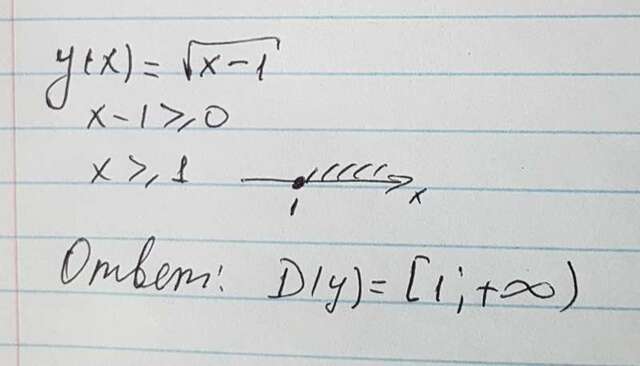 y(x) = √x-1
x-1 ≥ 0
x ≥ 1
1 x
Ответ: D(y) = [1; +∞)